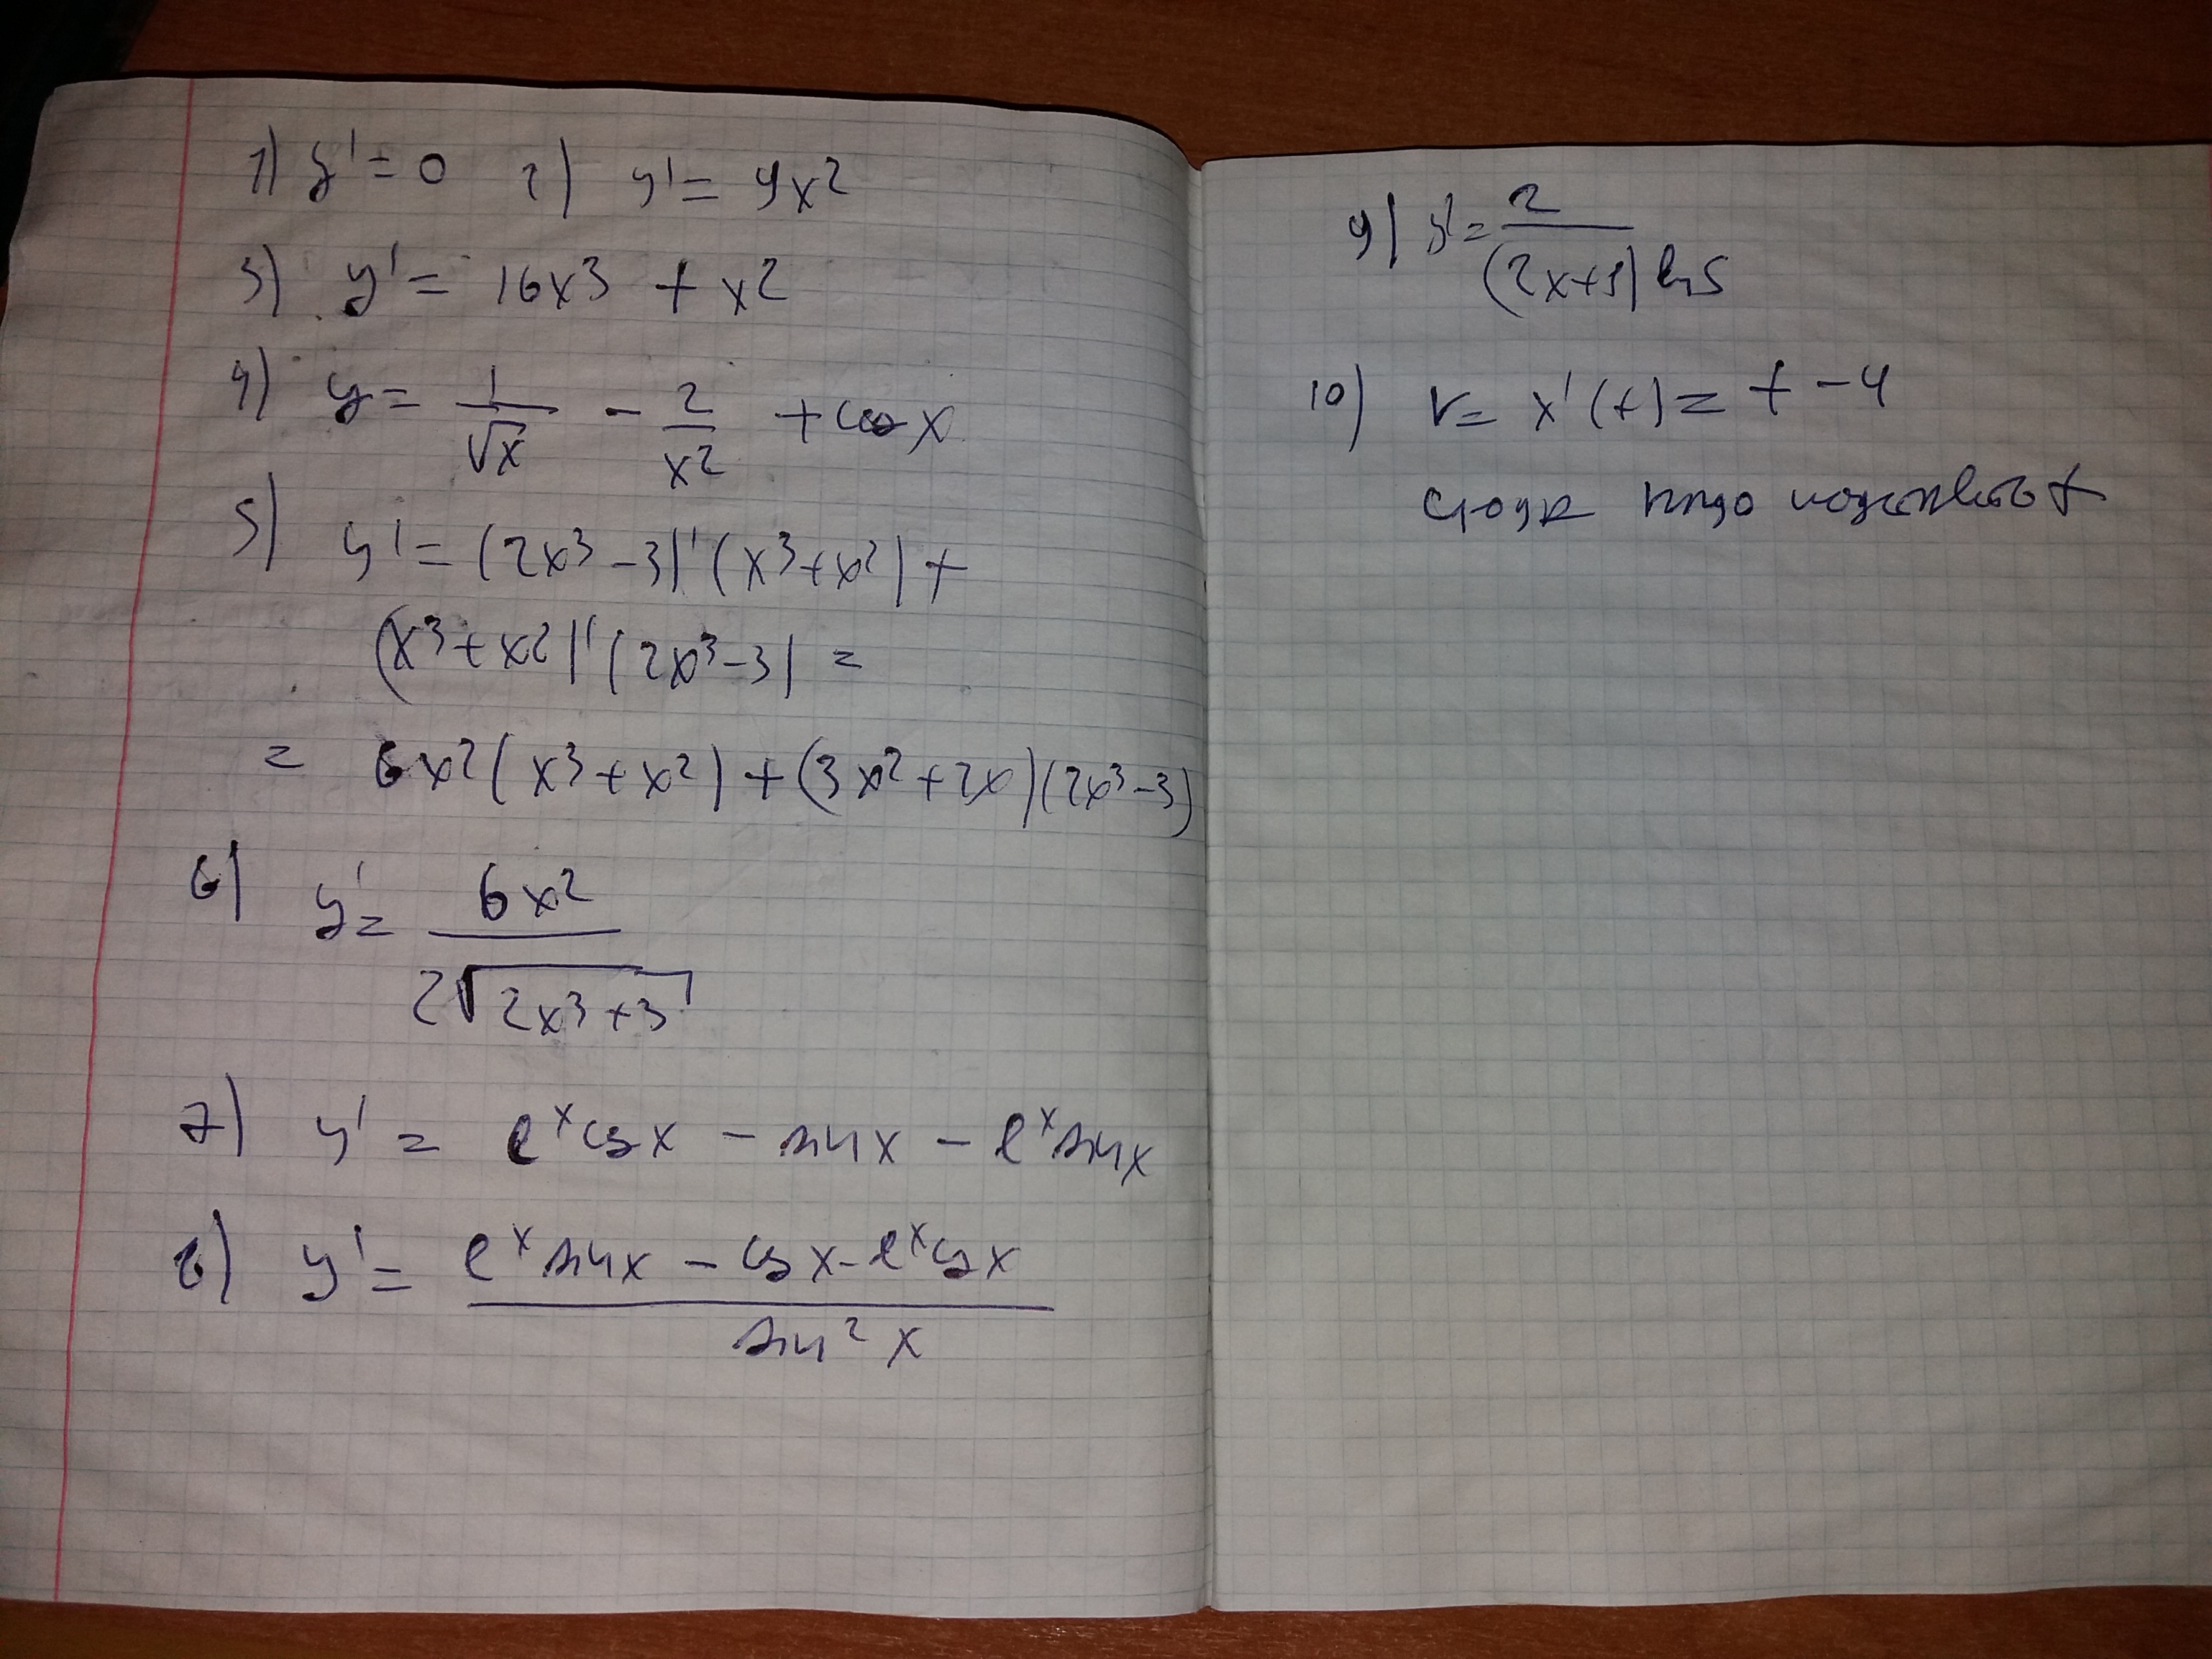 1) y' = 0   2) y' = 9x²
3) y' = 16x³ + x²
4) y = 1/√x - 2/x² + cos x
5) y' = (2x³-3)'(x³+x²) +
(x³+x²)'(2x³-3) =
= 6x²(x³+x²) + (3x²+2x)(2x³-3)
6) y' = 6x²/(2√(2x³+3))
7) y' = eˣcos x - sin x - eˣsin x
8) y' = (eˣ sin x - cos x - eˣcos x)/(sin² x)
9) y' = 2/((2x+1) ln 5)
10) v = x'(t) = t - 4
сюда надо подставить t